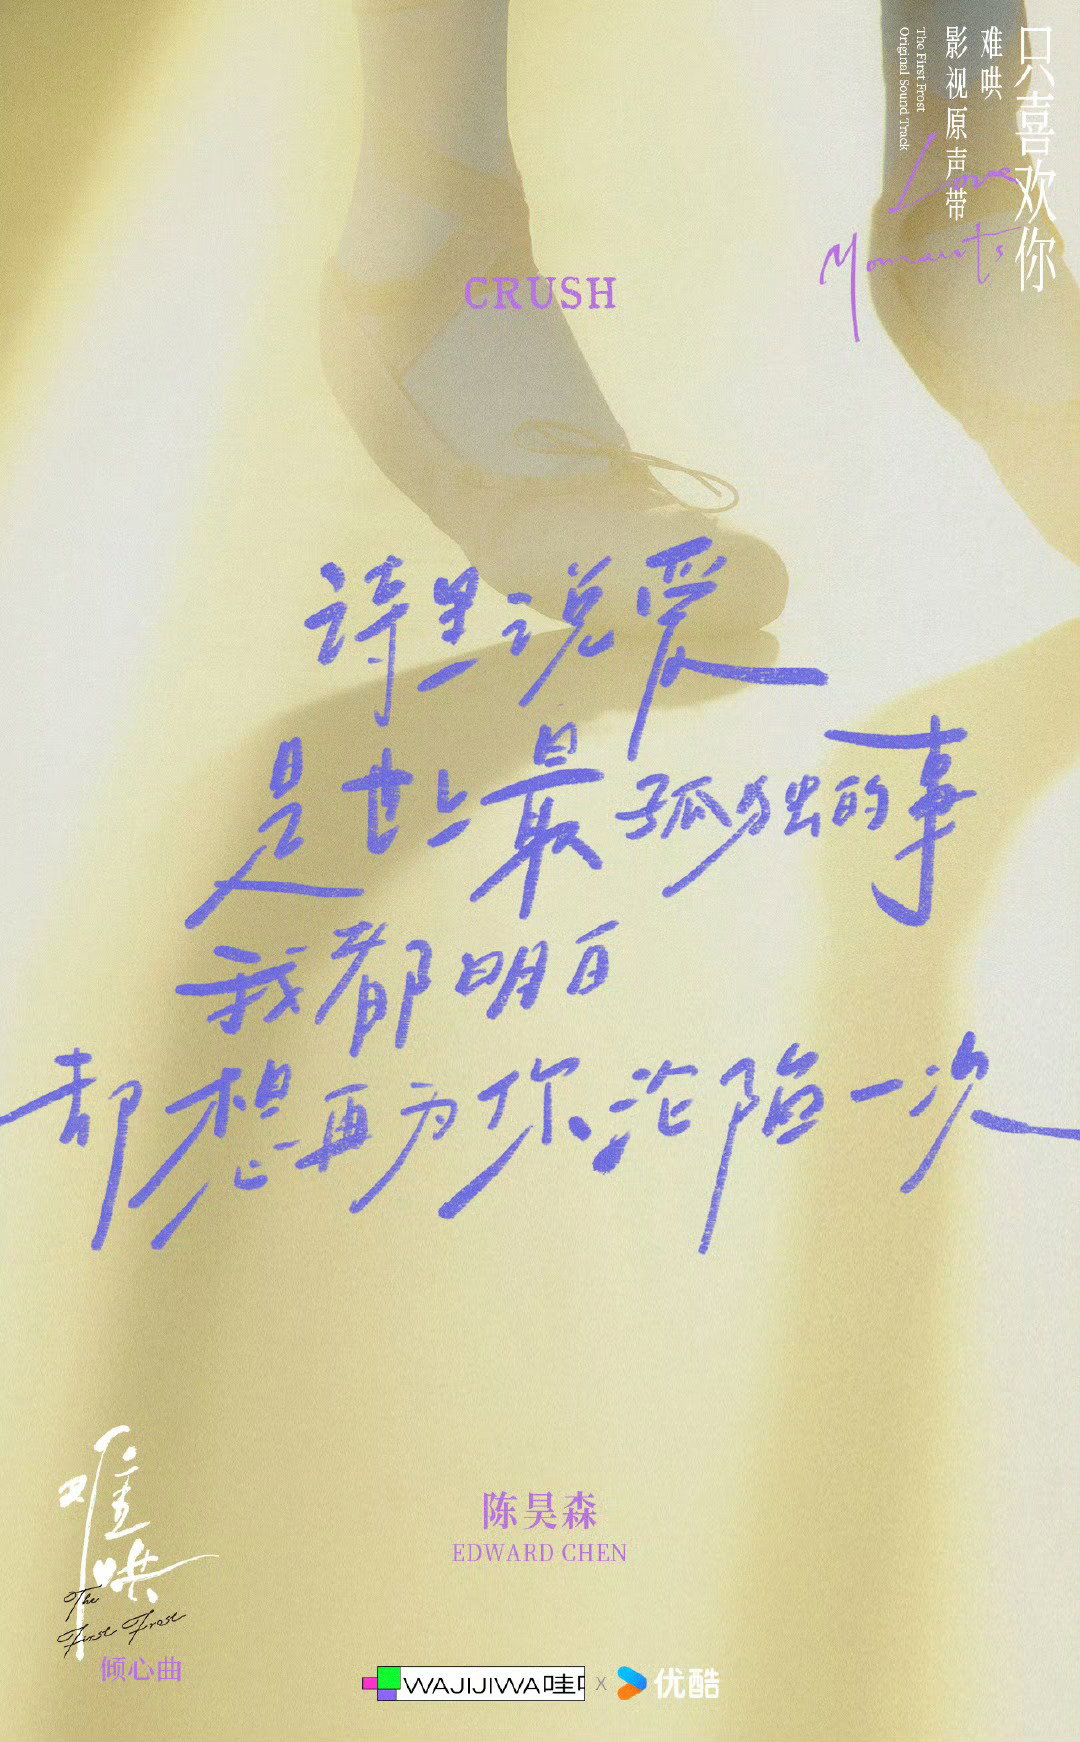 只喜欢你
难哄
影视原声带
The First Frost
Original Sound Track
Love
Moments
CRUSH
诗里说爱
是世上最孤独的事
我都明白
却想再为你茫陷一次
陈昊森
EDWARD CHEN
难哄
The
First Frost
倾心曲
WAJIJIWA哇 x 优酷